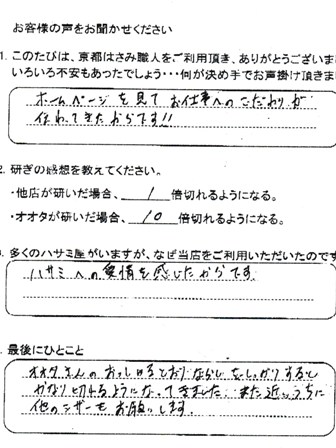 お客様の声をお聞かせください
1. このたびは、京都はさみ職人をご利用頂き、ありがとうございま
いろいろ不安もあったでしょう・・・何が決め手でお声掛け頂きま
ホームページを見てお仕事へのこだわりが
伝わってきたからです!!
2. 研ぎの感想を教えてください。
・他店が研いだ場合、 1 倍切れるようになる。
・オオタが研いだ場合、 10 倍切れるようになる。
多くのハサミ屋がいますが、なぜ当店をご利用いただいたのです
ハサミへの愛情を感じたからです。
最後にひとこと
オオタさんのおっしゃるとおりならしをしっかりすると
かなり切れるようになってきました。また近いうちに
他のシザーもお願いします。